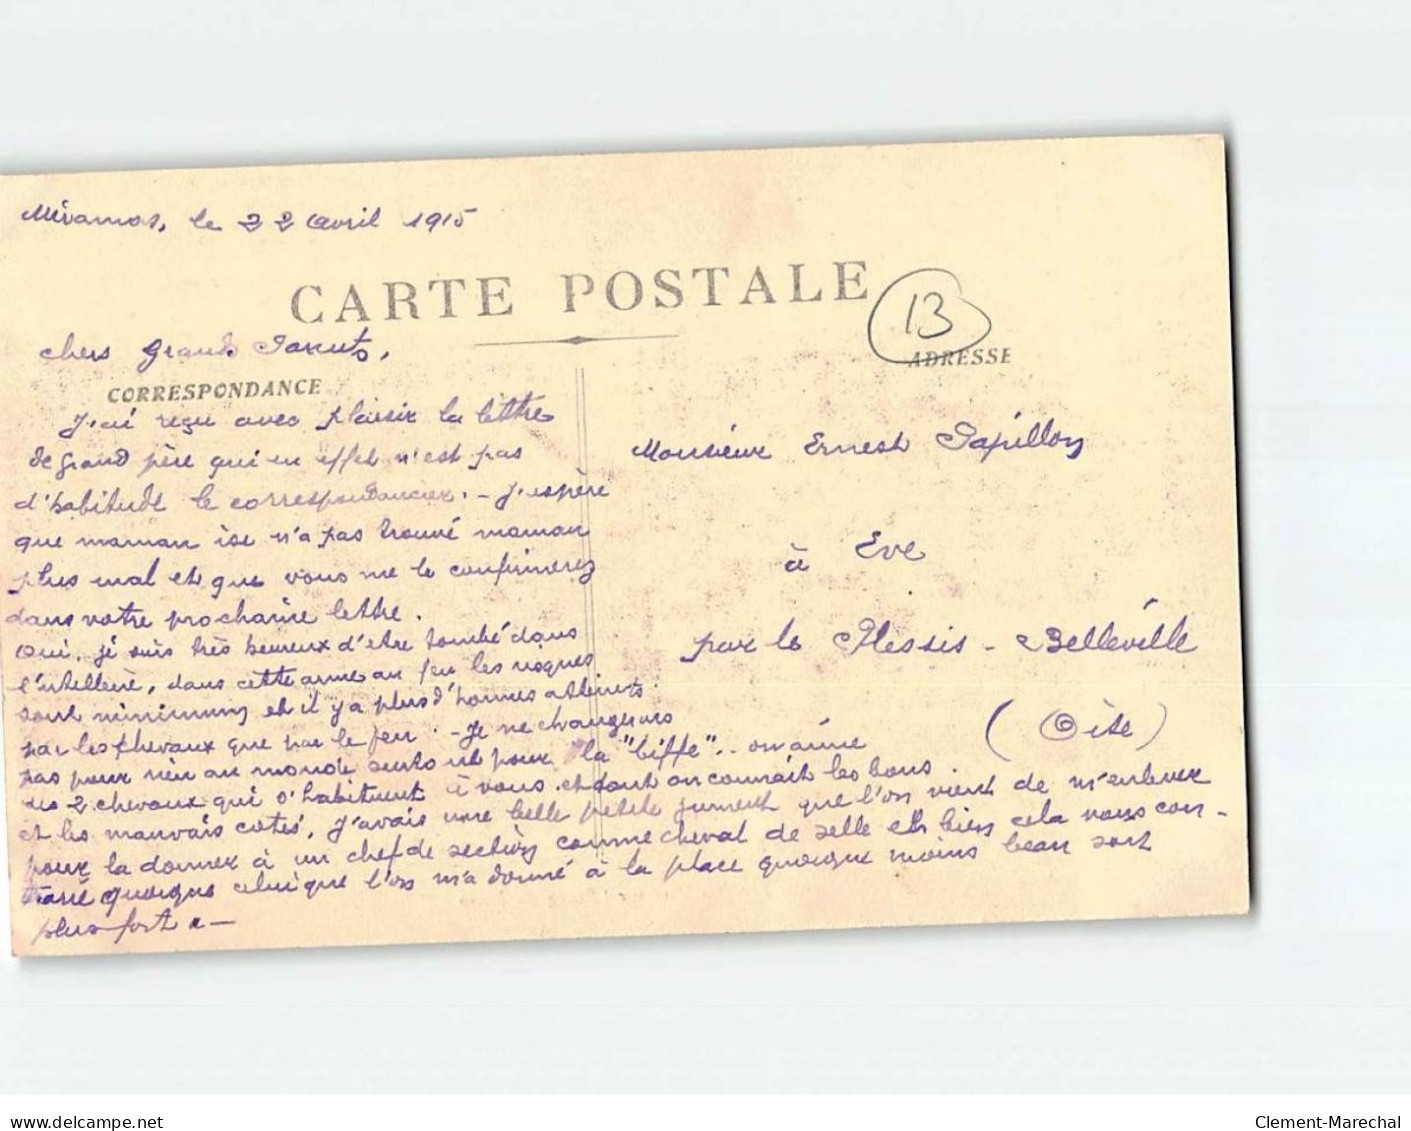 Miramas, le 22 avril 1915
CARTE POSTALE
13
ADRESSE
chers Grands Parents,
CORRESPONDANCE
J'ai reçu avec plaisir la lettre
de grand père qui en effet n'est pas
d'habitude le correspondancier. - J'espère
que maman ise n'a pas trouvé maman
plus mal et que vous me le confirmerez
dans votre prochaine lettre.
Oui, je suis très heureux d'etre tombé dans
l'artillerie, dans cette arme au feu les risques
sont minimums et il y a plus d'hommes atteints
par les chevaux que par le feu. - Je ne changerais
pas pour rien au monde surtout pour la "biffe".. on aime
ses 2 chevaux qui s'habituent à vous et dont on connait les bons
et les mauvais cotés. J'avais une belle petite jument que l'on vient de m'enlever
pour la donner à un chef de section comme cheval de selle et bien cela vous con-
trarié quoique celui que l'on m'a donné à la place quoique moins beau soit
plus fort
Monsieur Ernest Papillon
à Eve
par le Plessis - Belleville
(Oise)
delcampe.net
Clement-Marechal